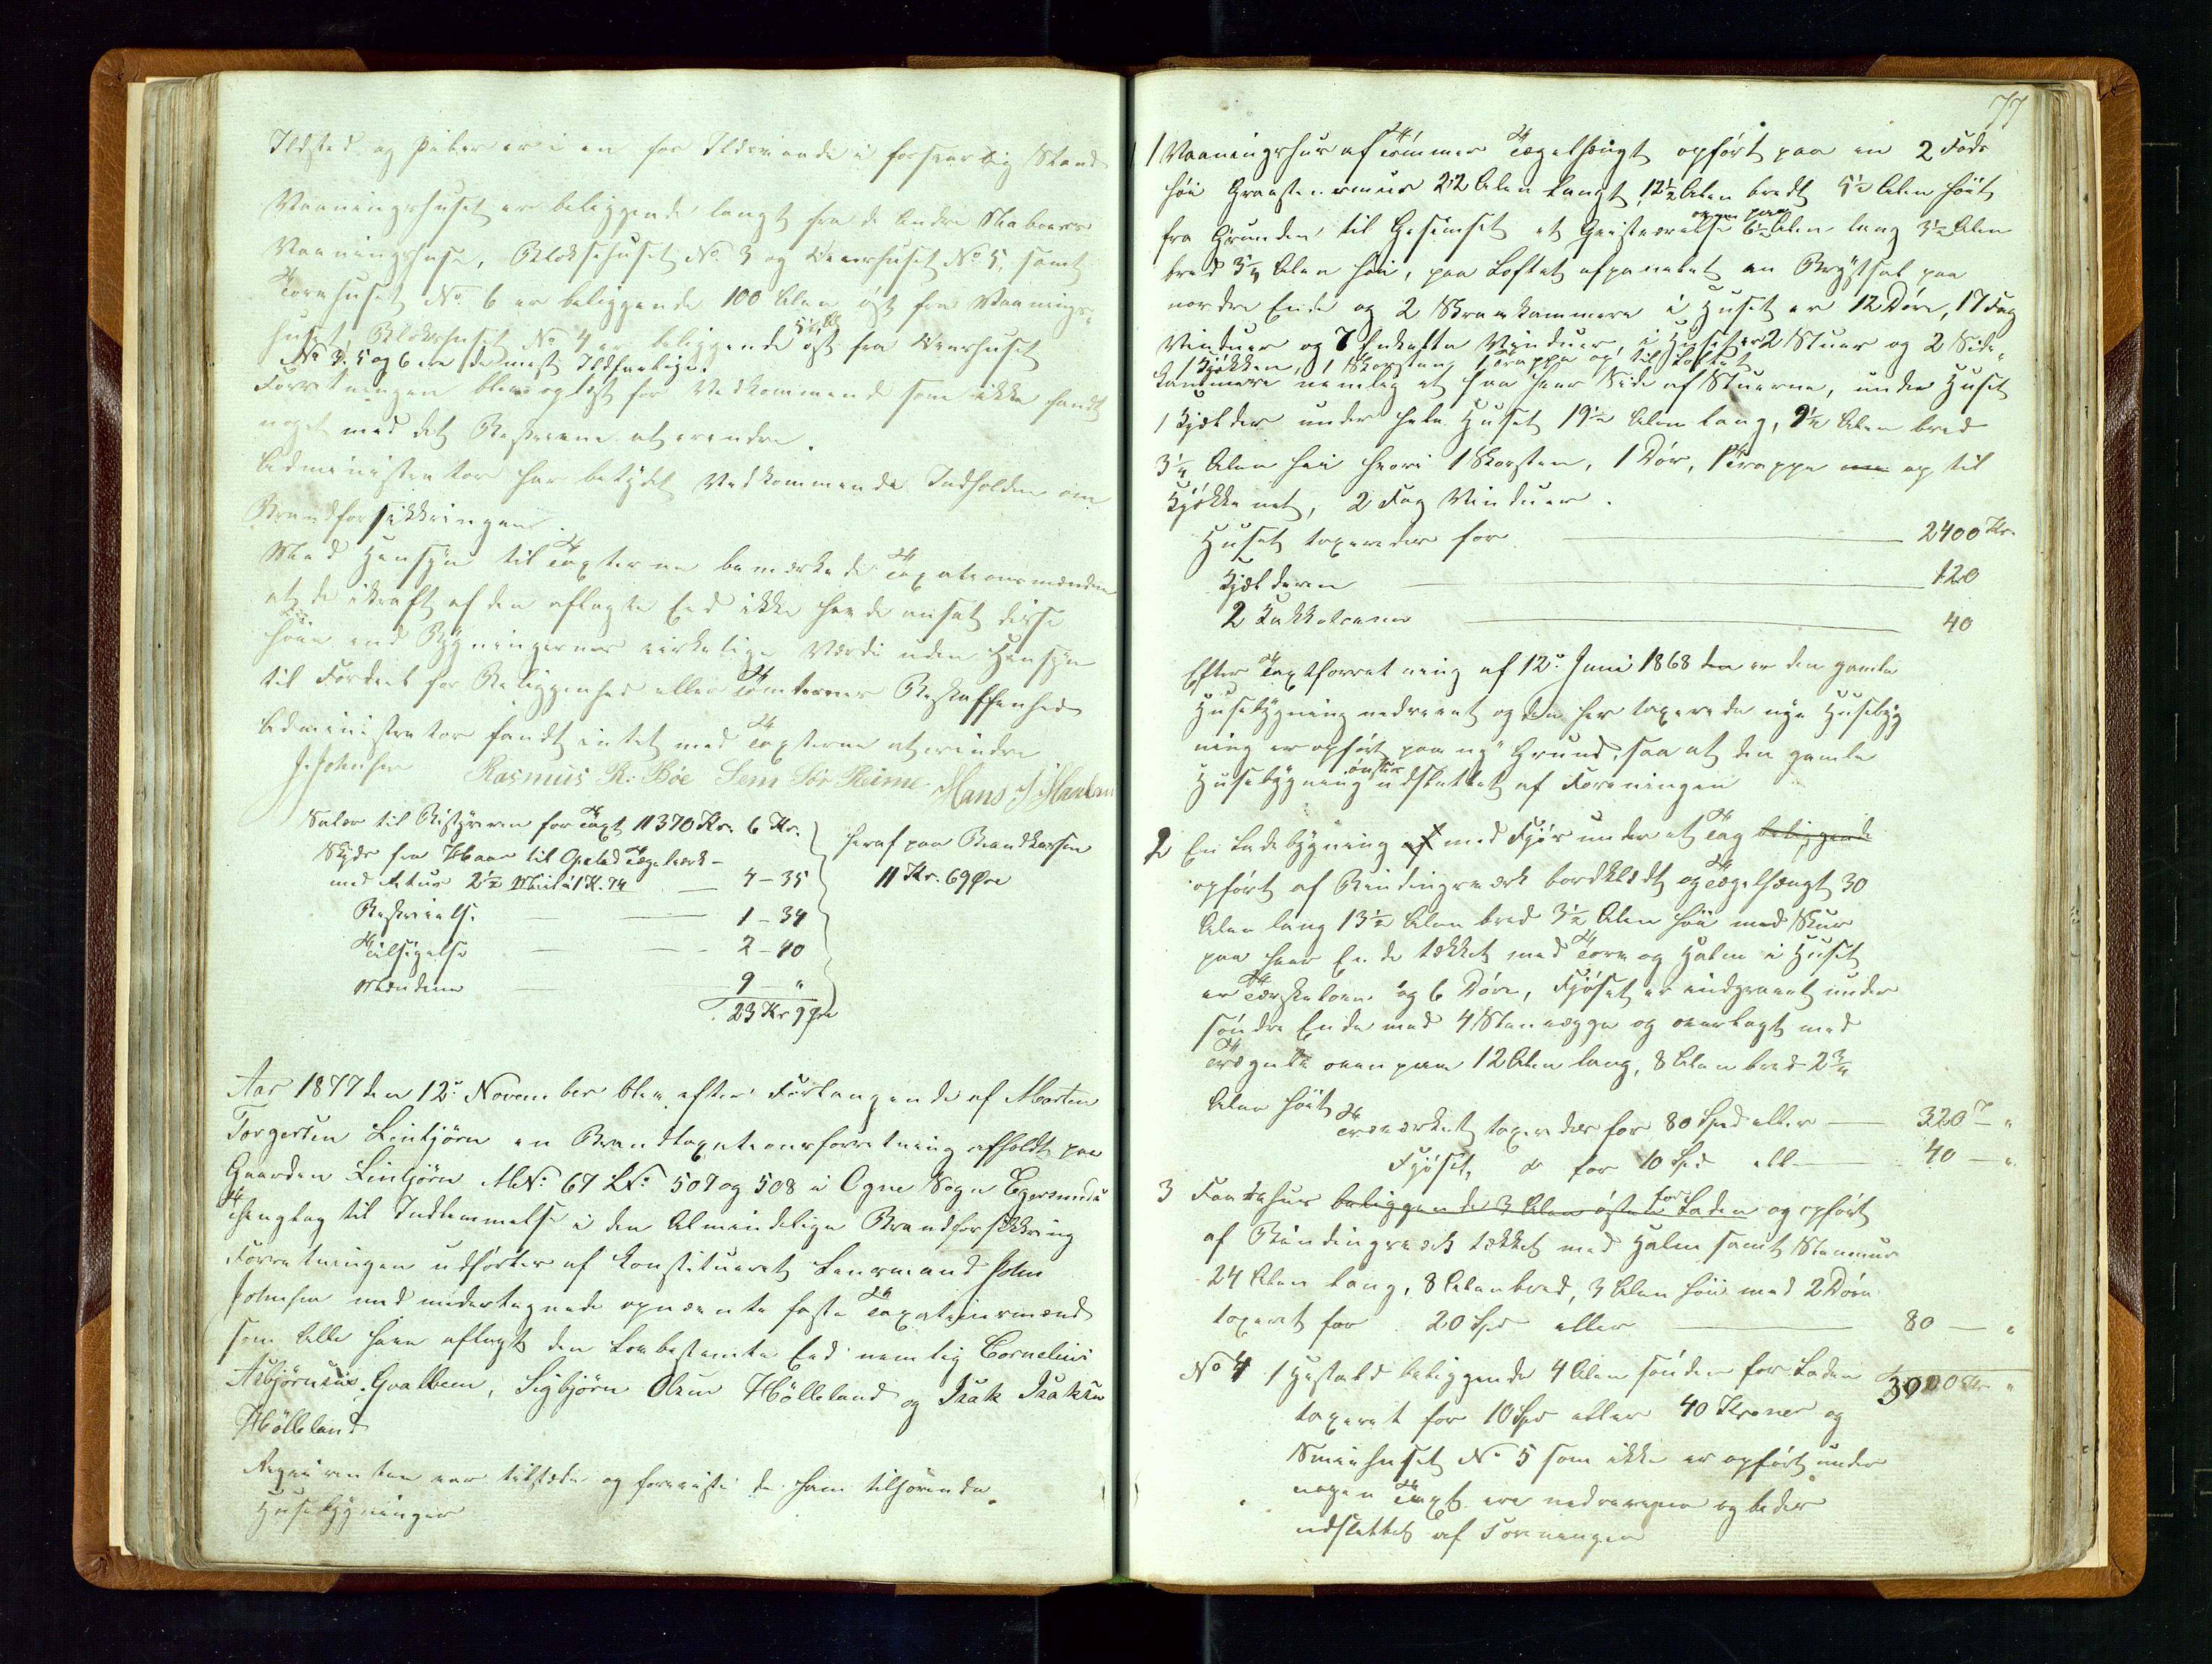 Ildsted og Piber er i en for Ildsvaade i forsvarlig Stand
Vaaningshuset er beliggende langt fra de Andre Naboers
Vaaningshuse, Stokkehuset No 3 og Veierhuset No 5, samt
Tornhuset No 6 er beliggende 100 Alen öst fra Vaanings-
huset, Blokkehuset No 4 er beliggende 5½ Al öst fra Veierhuset
No 3, 5 og 6 ere de mest Ildfarlige.
Forretningen blev oplæst for Vedkommende som ikke fandt
noget med det Beskrevne at erindre.
Administrator har betydet Vedkommende Indholden om
Brandforsikkringen.
Med Hensyn til Taxterne bemærkede Taxationsmændene
at de ikraft af den aflagte Eed ikke havde ansat disse
höiere end Bygningernes virkelige Værdi uden Hensyn
til Fordeel for Beliggenhed eller Tomternes Beskaffenhed
Administrator fandt intet med Taxterne at erindre
J. Johnsen Rasmus R. Böe Sem Sör Reime Hans J.
Salær til Bestyreren for Taxt 11370 Kr. 6 Kr.
Skyds fra Haar til Opstad Tegelværk -
med Retur 2½ Miil á 1 K. 74 — 4 - 35
Beskrivelse — 1 - 34
Tilsigelse — 2 - 40
Mændene — 9 - "
23 Kr 9 Öre
heraf paa Brandkassen
11 Kr. 69 Öre
Aar 1877 den 12te November blev efter Forlangende af Morten
Torgersen Lintjörn en Brandtaxationsforretning afholdt paa
Gaarden Lintjörn MNo 67 LNo 507 og 508 i Ogne Sogn Egersunds
Thinglag til Indlemmelse i den Almindelige Brandforsikkring
Forretningen udförtes af Konstitueret Lensmand John
Johnsen med undertegnede opnævnte faste Taxationsmænd
som Alle have aflagt den Lovbestemte Eed nemlig Cornelius
Asbjörnsen Qvalbein, Sigbjörn Olsen Hölleland og Isak Isaksen
Hölleland
Reqvirenten var tilstæde og foreviste de ham tilhörende
Husebygninger
77
1 Vaaningshus af Tömmer Tegelhængt opfört paa en 2 Fods
höi Graastensmuur 22 Alen langt, 12½ Alen bredt 5½ Alen höit
fra Grunden til Gesimset et oven paa 6½ Alen lang 3½ Alen
bred 3¼ Alen höi, paa Loftet afpanelet en Brystsal paa
nordre Ende og 2 Skraakammere i Huset er 12 Döre, 17 Fag
Vinduer og 7 Enkelte Vinduer, i Huset er 2 Stuer og 2 Side-
1 Kjökken, 1 Skorsten, 1 Trappe op til Loftet
kammere nemlig et paa hver Side af Stuerne, under Huset
1 Kjelder under hele Huset 19½ Alen lang, 9½ Alen bred
3¼ Alen höi hvori 1 Skorsten, 1 Dör, 1 Trappe op til
Kjökkenet, 2 Fag Vinduer.
Huset taxeredes for — 2400 Kr.
Kjelderen — 120
2 Kakkelovne — 40
Efter Taxtforretning af 12te Juni 1868 er den gamle
Husebygning nedrevet og den her taxerede nye Husebyg
ning er opfört paa ny Grund, saa at den gamle
Husebygning önskes udslettet af Foreningen
2 En Ladebygning med Fjös under et Tag beliggende
opfört af Bindingsværk bordklædt og Tegelhængt 30
Alen lang 13½ Alen bred 3½ Alen höi med Skur
paa hver Ende tækket med Torv og Halm i Huset
er Tærskeloen og 6 Döre, Fjöset er indgravet under
söndre Ende med 4 Stenvægge og overlagt med
oven paa 12 Alen lang, 8 Alen bred 2¾
Alen höit
Træværket taxeredes for 80 Spd eller — 320 - "
Fjöset do for 10 Spd ell — 40 — "
3 Faarehus beliggende 3 Alen östen for Laden og opfört
af Bindingsværk tækket med Halm samt Stenmur
24 Alen lang, 8 Alen bred, 3 Alen höi med 2 Döre
taxeret for 20 Spd eller — 80 — "
3000 Kr "
No 4 1 Hestald beliggende 4 Alen sönden for Laden
taxeret for 10 Spd eller 40 Kroner og
Smiehuset No 5 som ikke er opfört under
nogen Taxt ere nedrevene og bedes
udslettet af Foreningen